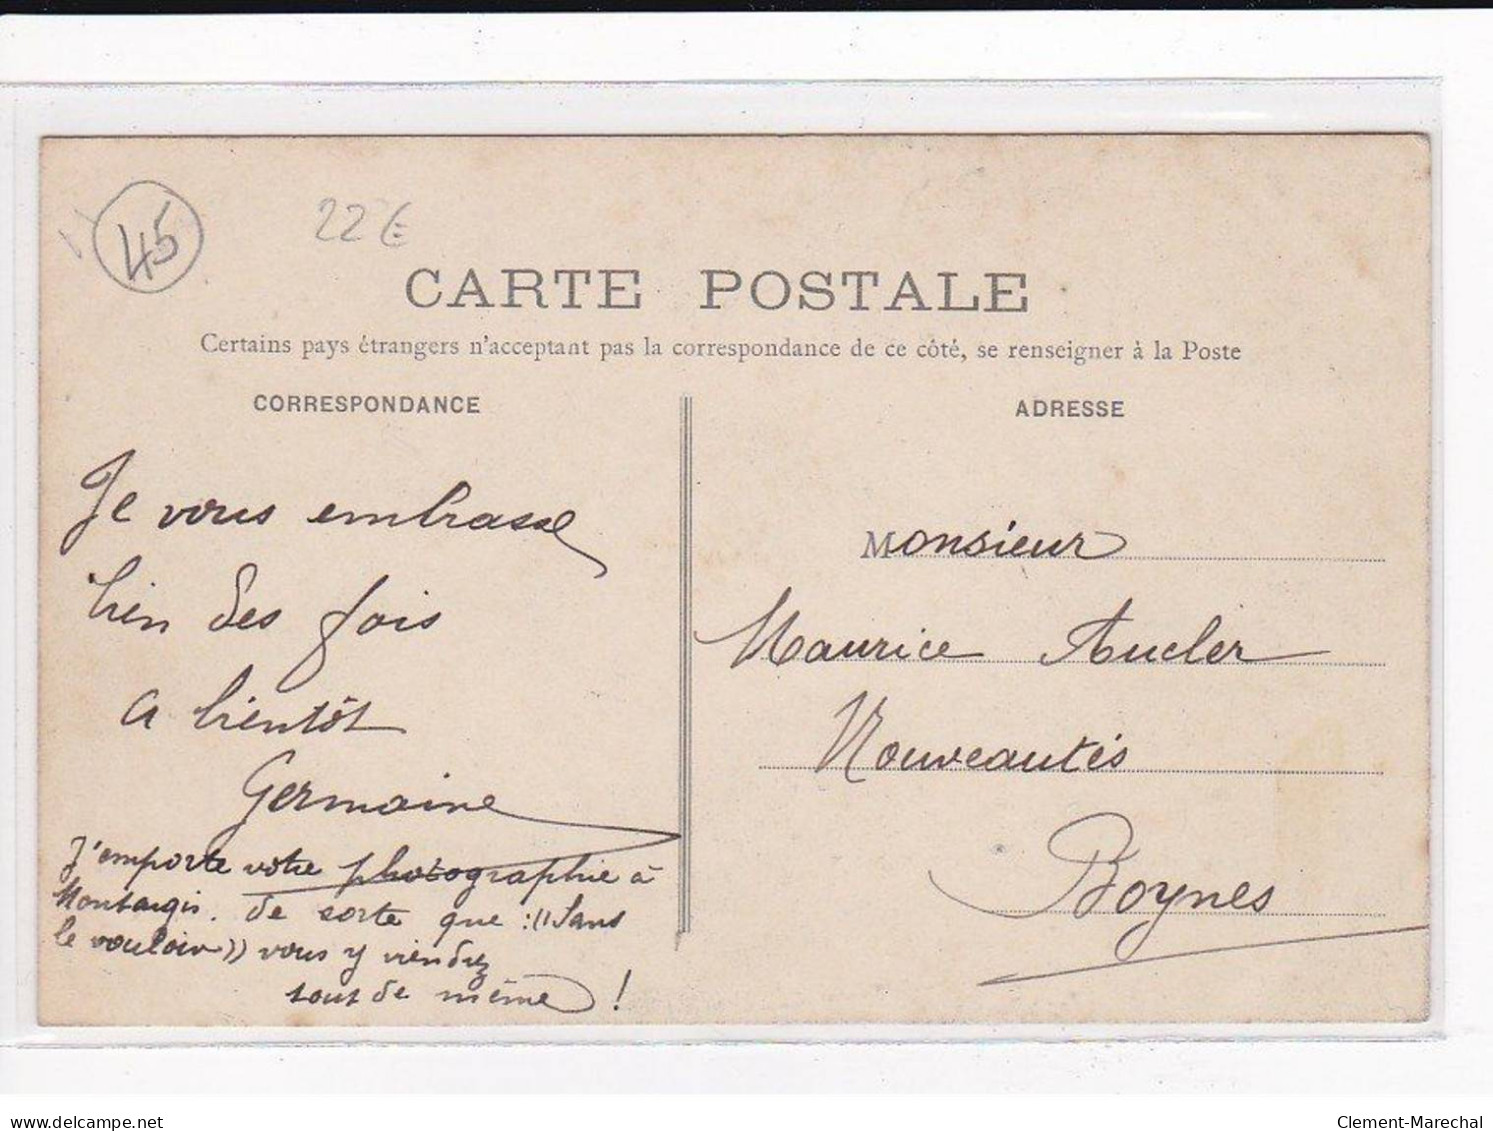 45
22€
CARTE POSTALE
Certains pays étrangers n'acceptant pas la correspondance de ce côté, se renseigner à la Poste
CORRESPONDANCE
Je vous embrasse
bien des fois
a bientôt
Germaine
J'emporte votre photographie à
Montargis. de sorte que : ((Sans
le vouloir)) vous y viendrez
tout de même !
ADRESSE
Monsieur
Maurice Aucler
Nouveautés
Boynes
delcampe.net
Clement-Marechal